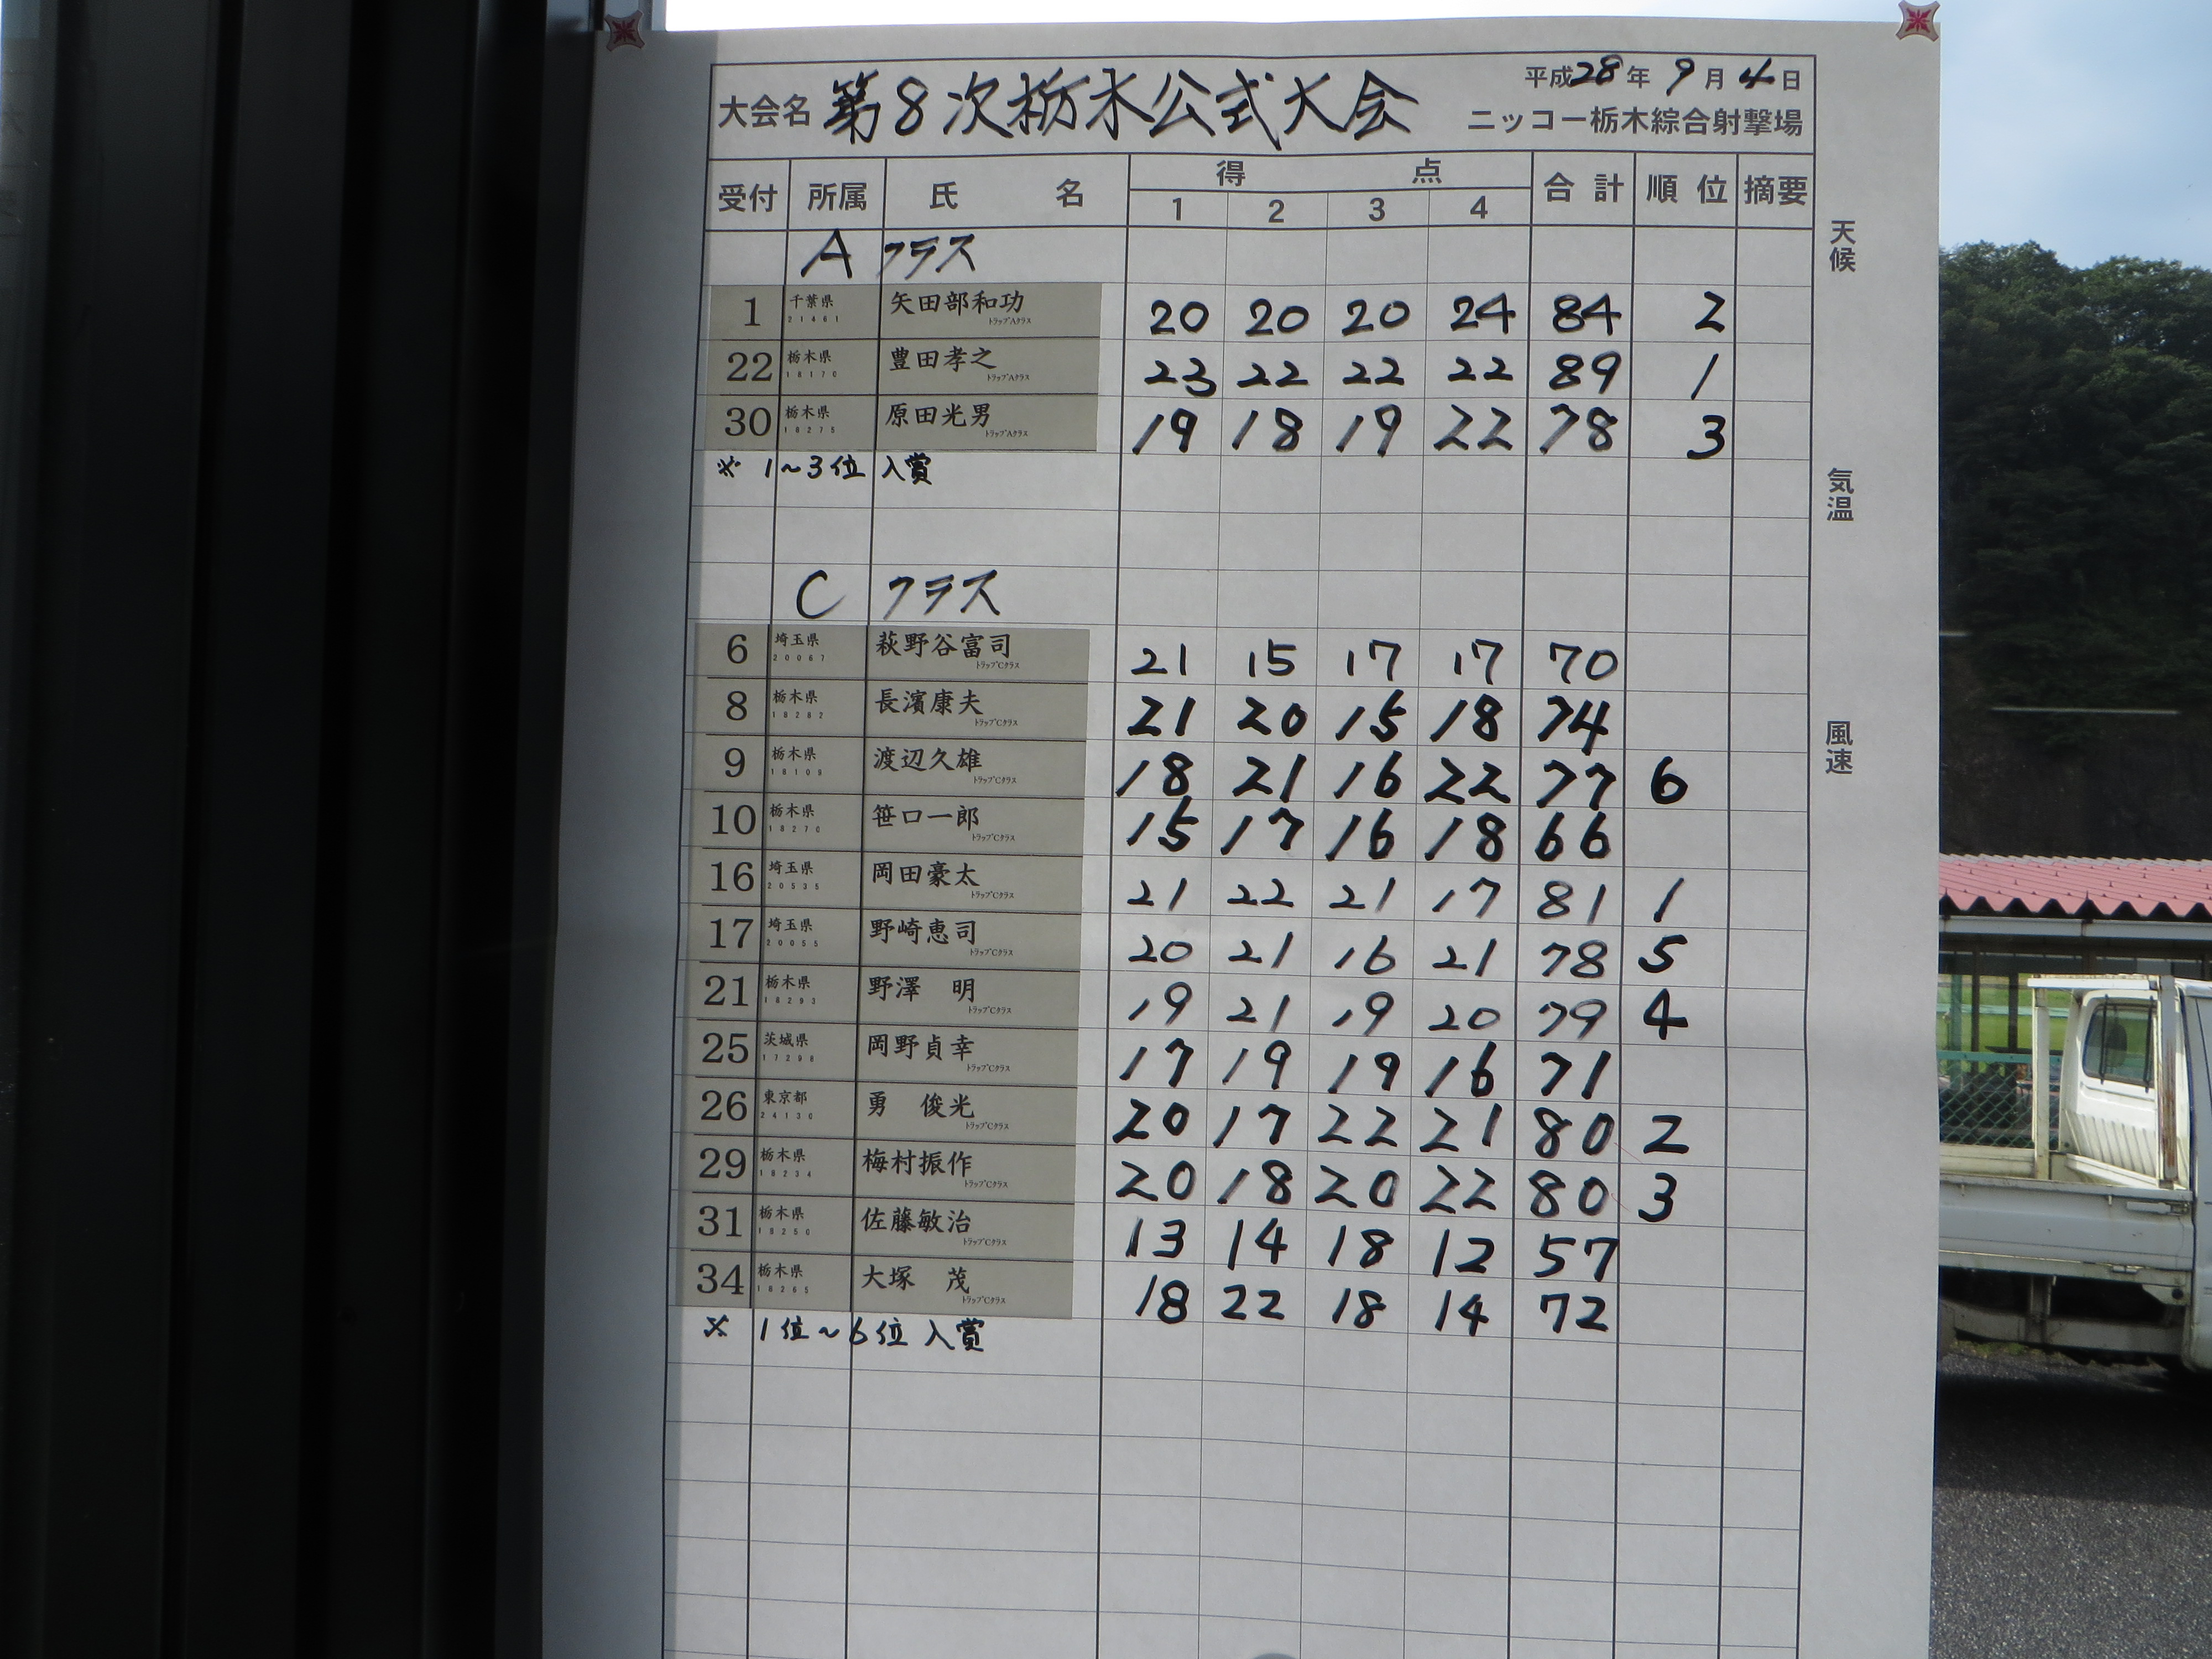 平成28年 9月 4日
大会名 第8次栃木公式大会
ニッコー栃木綜合射撃場
受付 所属 氏 名 得 点 合計 順位 摘要
1 2 3 4
A クラス
1 千葉県 矢田部和功 20 20 20 24 84 2
21461 トラップAクラス
22 栃木県 豊田孝之 23 22 22 22 89 1
18170 トラップAクラス
30 栃木県 原田光男 19 18 19 22 78 3
18275 トラップAクラス
※ 1～3位 入賞
C クラス
6 埼玉県 萩野谷富司 21 15 17 17 70
20067 トラップCクラス
8 栃木県 長濱康夫 21 20 15 18 74
18282 トラップCクラス
9 栃木県 渡辺久雄 18 21 16 22 77 6
18109 トラップCクラス
10 栃木県 笹口一郎 15 17 16 18 66
18270 トラップCクラス
16 埼玉県 岡田豪太 21 22 21 17 81 1
20535 トラップCクラス
17 埼玉県 野崎恵司 20 21 16 21 78 5
20055 トラップCクラス
21 栃木県 野澤 明 19 21 19 20 79 4
18293 トラップCクラス
25 茨城県 岡野貞幸 17 19 19 16 71
17298 トラップCクラス
26 東京都 勇 俊光 20 17 22 21 80 2
24130 トラップCクラス
29 栃木県 梅村振作 20 18 20 22 80 3
18234 トラップCクラス
31 栃木県 佐藤敏治 13 14 18 12 57
18250 トラップCクラス
34 栃木県 大塚 茂 18 22 18 14 72
18265 トラップCクラス
※ 1位～6位 入賞
天候
気温
風速